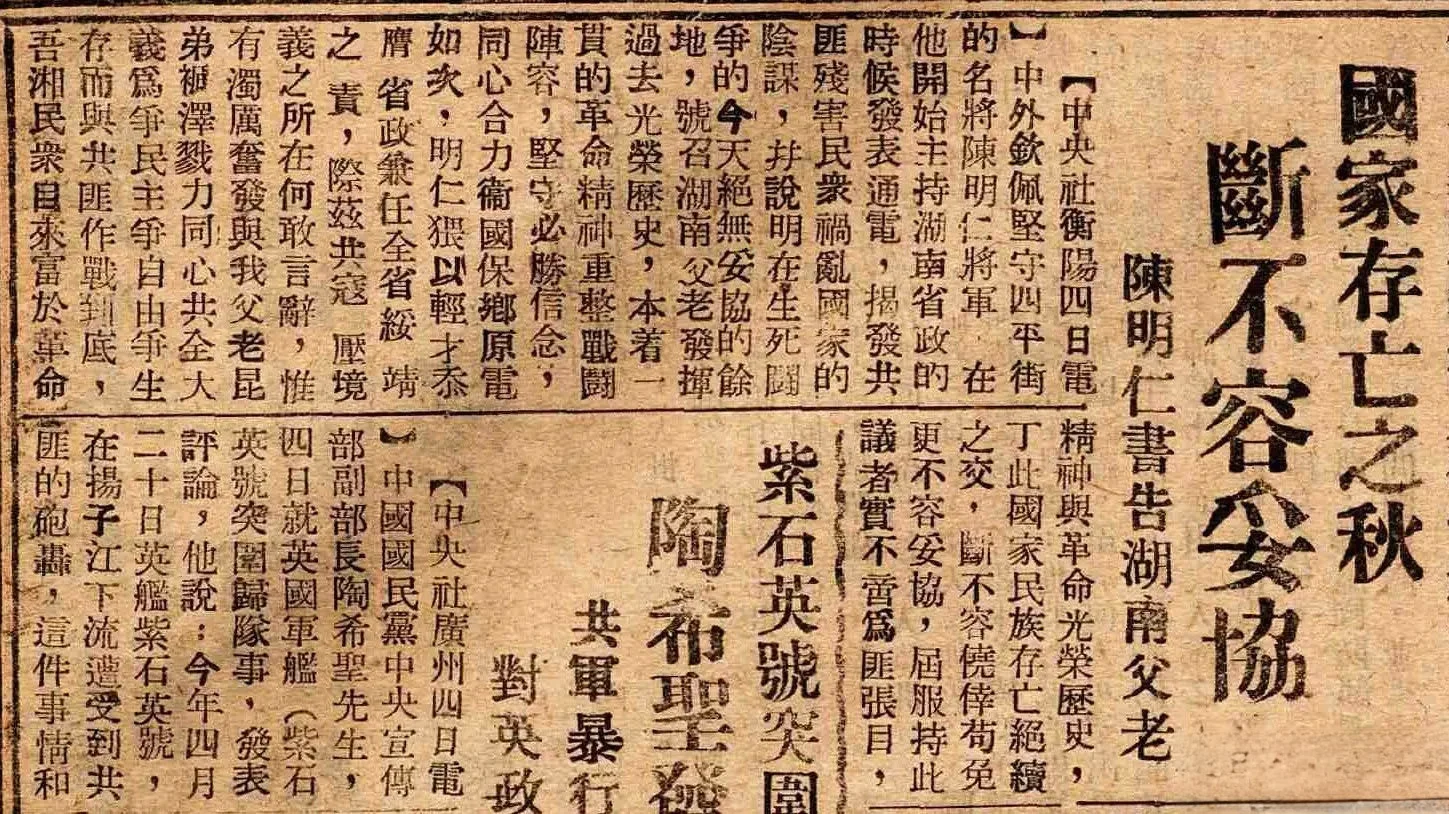 國家存亡之秋
斷不容妥協
陳明仁書告湖南父老
【中央社衡陽四日電
】中外欽佩堅守四平街
的名將陳明仁將軍　在
他開始主持湖南省政的
時候發表通電，揭發共
匪殘害民衆禍亂國家的
陰謀，幷說明在生死鬪
爭的今天絕無妥協的餘
地，號召湖南父老發揮
過去光榮歷史，本着一
貫的革命精神重整戰鬪
陣容，堅守必勝信念，
同心合力衞國保鄉原電
如次，明仁猥以輕才忝
膺　省政兼任全省綏　靖
之　責，際茲共寇　壓境
義之所在何敢言辭，惟
有濁厲奮發與我父老昆
弟褫澤戮力同心共全大
義爲爭民主爭自由爭生
存而與共匪作戰到底，
吾湘民衆自來富於革命
精神與革命光榮歷史，
丁此國家民族存亡絕續
之交，斷不容僥倖苟免
更不容妥協，屈服持此
議者實不啻爲匪張目，
紫石英號突圍
陶希聖發
共軍暴行
對英政
【中央社廣州四日電
】中國國民黨中央宣傳
部副部長陶希聖先生，
四日就英國軍艦（紫石
英號突圍歸隊事，發表
評論，他說：今年四月
二十日英艦紫石英號，
在揚子江下流遭受到共
匪的砲轟，這件事情和